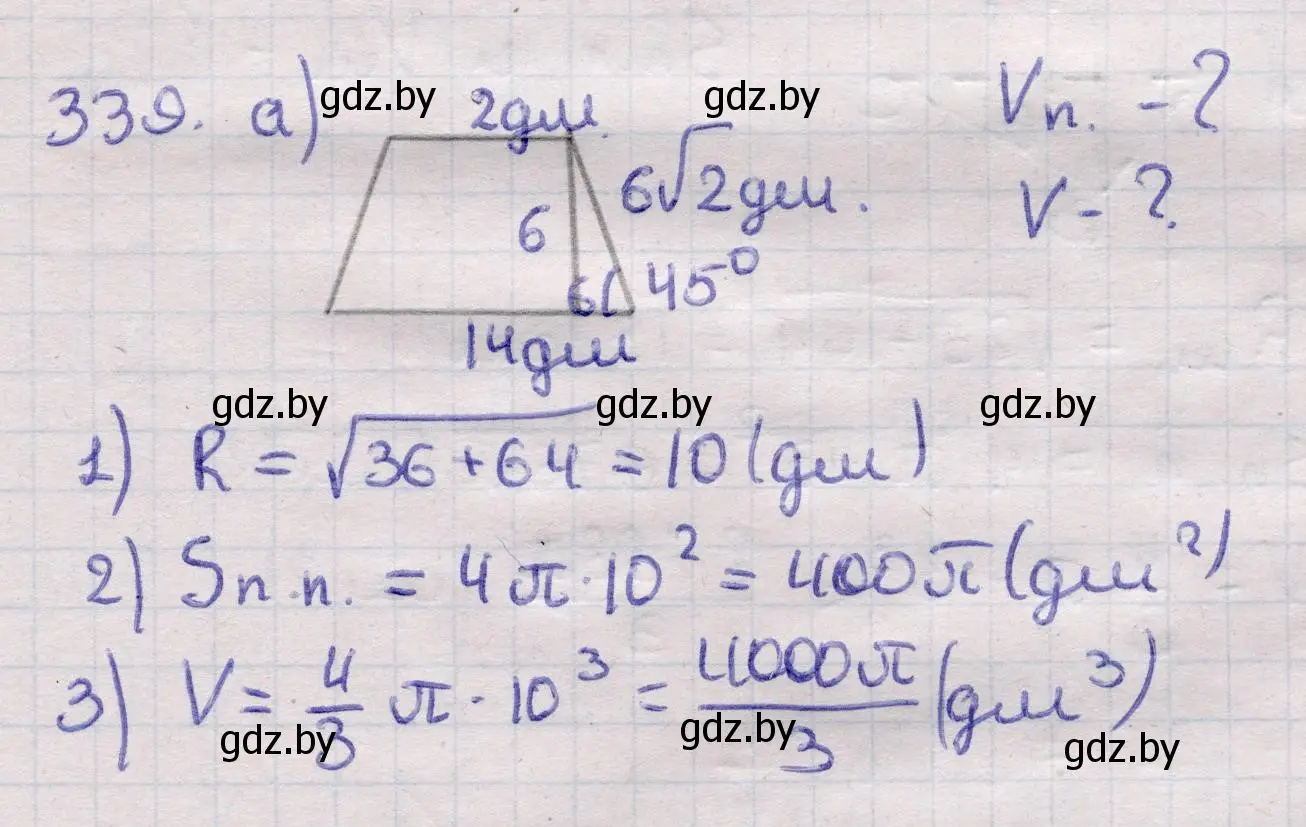 339. а) gdz.by 2дм. gdz.by Vп. - ?
6√2 дм. V - ?
6
6 45°
14дм
gdz.by gdz.by gdz.by
1) R = √36+64 = 10 (дм)
2) Sп.п. = 4π·10² = 400π (дм²)
3) V = 4/3 π · 10³ = 4000π/3 (дм³)
gdz.by gdz.by gdz.by